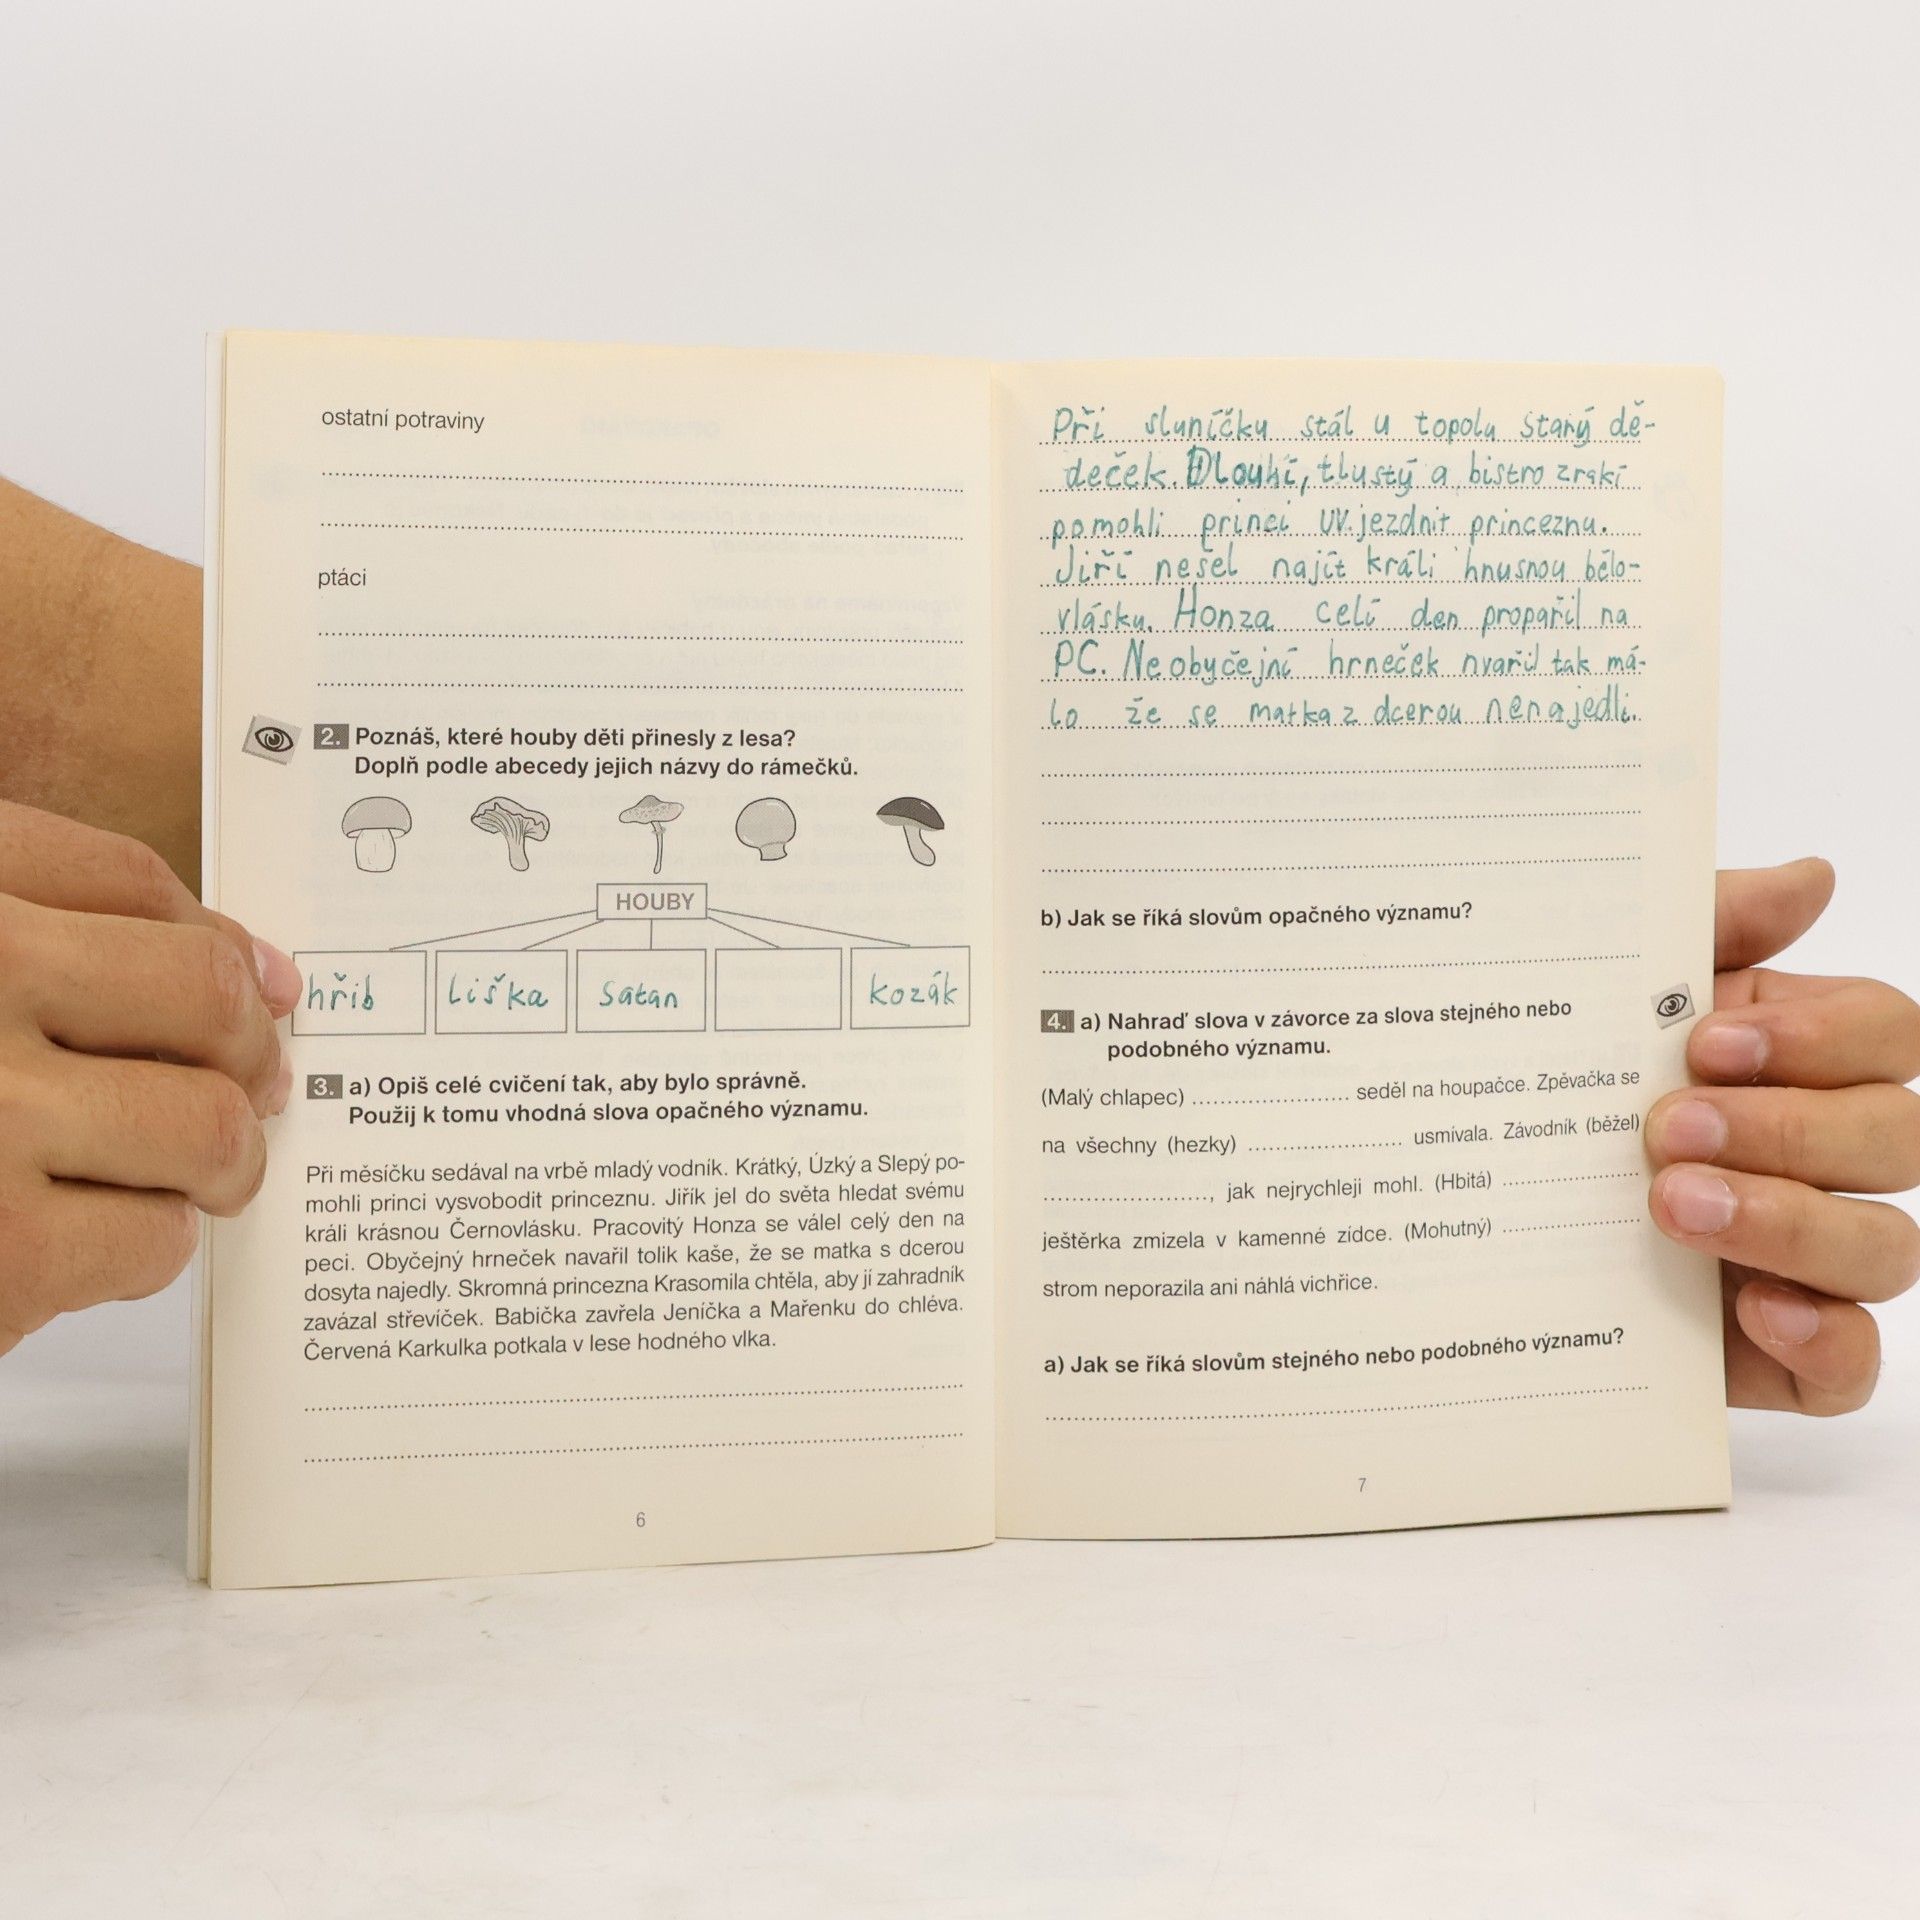 ostatní potraviny
ptáci
2. Poznáš, které houby děti přinesly z lesa?
Doplň podle abecedy jejich názvy do rámečků.
HOUBY
hřib liška satan kozák
3. a) Opiš celé cvičení tak, aby bylo správně.
Použij k tomu vhodná slova opačného významu.
Při měsíčku sedával na vrbě mladý vodník. Krátký, Úzký a Slepý po-
mohli princi vysvobodit princeznu. Jiřík jel do světa hledat svému
králi krásnou Černovlásku. Pracovitý Honza se válel celý den na
peci. Obyčejný hrneček navařil tolik kaše, že se matka s dcerou
dosyta najedly. Skromná princezna Krasomila chtěla, aby jí zahradník
zavázal střevíček. Babička zavřela Jeníčka a Mařenku do chléva.
Červená Karkulka potkala v lese hodného vlka.
6
Při sluníčku stál u topolu starý dě-
deček. Dlouhí, tlustý a bistro zrakí
pomohli princi uv.jezdnit princeznu.
Jiří nešel najít králi hnusnou bělo-
vlásku. Honza celí den propařil na
PC. Neobyčejní hrneček nvařil tak má-
lo že se matka z dcerou nenajedli.
b) Jak se říká slovům opačného významu?
4. a) Nahraď slova v závorce za slova stejného nebo
podobného významu.
(Malý chlapec) ........................ seděl na houpačce. Zpěvačka se
na všechny (hezky) ....................... usmívala. Závodník (běžel)
........................., jak nejrychleji mohl. (Hbitá) .....................
ještěrka zmizela v kamenné zídce. (Mohutný) .....................
strom neporazila ani náhlá vichřice.
a) Jak se říká slovům stejného nebo podobného významu?
7